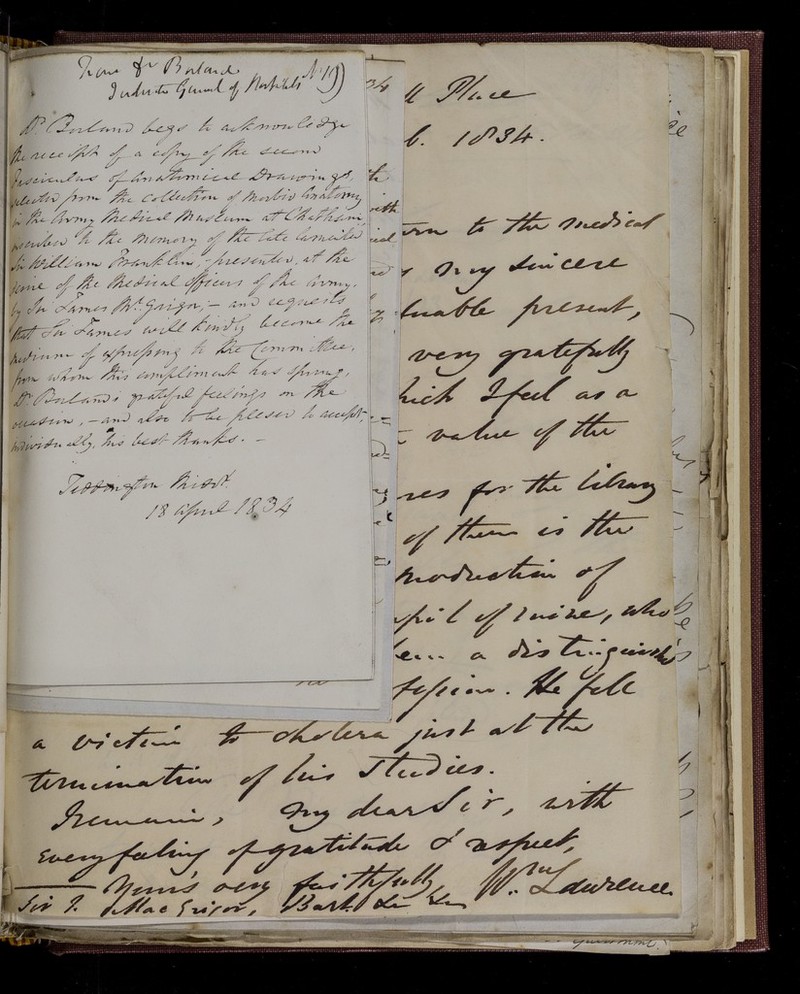 From Dr Borland
Inspector General of Hospitals No 19
Dr Borland begs to acknowledge
the receipt of a copy of the second
Fasciculus of Anatomical Drawings,
selected from the Collection of Morbid Anatomy
in the Army Medical Museum at Chatham,
inscribed to the Memory of the late lamented
Sir William Franklin; - presented, at the
of the Medical Officers of the Army,
by Sir James McGrigor; - and requests
that Sir James will kindly become the
medium of expressing to the Committee,
from whom this compliment has sprung,
Dr Borland's grateful feelings on the
occasion, - and also to be pleased to accept,
individually, his best thanks. -
Teddington Middx
18 April 1834
Place
1834.
to the medical
my sincere
present,
very gratefully
I feel as a
value of the
for the library
of them is the
production of
of mine, who
a distinguished
He fell
a victim to cholera just at the
termination of his studies.
I remain, my dear Sir, with
every feeling of gratitude & respect,
Yours very faithfully Wm Lawrence
Sir J. MacGrigor, Bart. &c &c